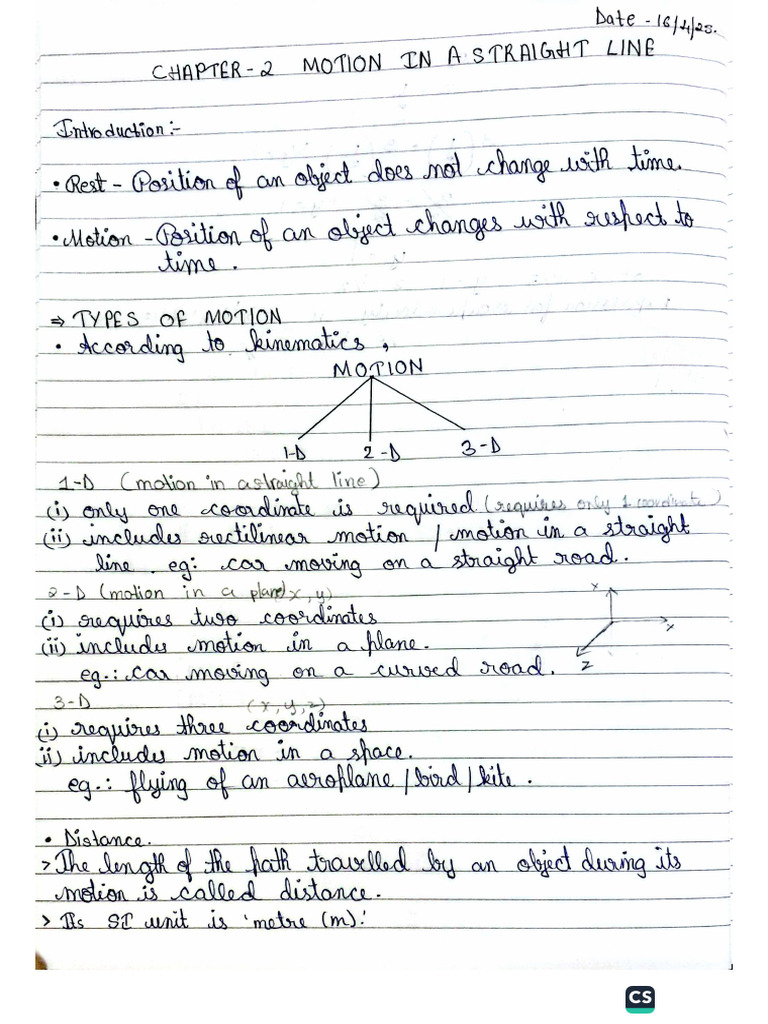 Date - 16/4/25.
CHAPTER-2 MOTION IN A STRAIGHT LINE
Introduction:-
• Rest - Position of an object does not change with time.
• Motion - Position of an object changes with respect to
time.
⇒ TYPES OF MOTION
• According to kinematics,
MOTION
1-D 2-D 3-D
1-D (motion in a straight line)
(i) only one coordinate is required (requires only 1 coordinate)
(ii) includes rectilinear motion / motion in a straight
line. eg: car moving on a straight road.
2-D (motion in a plane) (x, y)
(i) requires two coordinates
(ii) includes motion in a plane.
eg.: car moving on a curved road.
x
x
Z
3-D (x, y, z)
(i) requires three coordinates
ii) includes motion in a space.
eg.: flying of an aeroplane / bird / kite.
• Distance.
> The length of the path travelled by an object during its
motion is called distance.
> Its SI unit is 'metre (m).'
CS